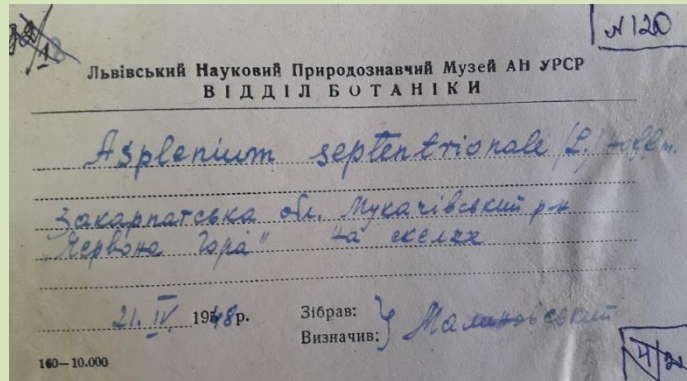 N 120
Львівський Науковий Природознавчий Музей АН УРСР
ВІДДІЛ БОТАНІКИ
Asplenium septentrionale (L.) Hoffm.
Закарпатська обл. Мукачівський р-н
"Червона Гора" на скелях
21. IV 1948р.
Зібрав:
Визначив: } Малиновський
160—10.000